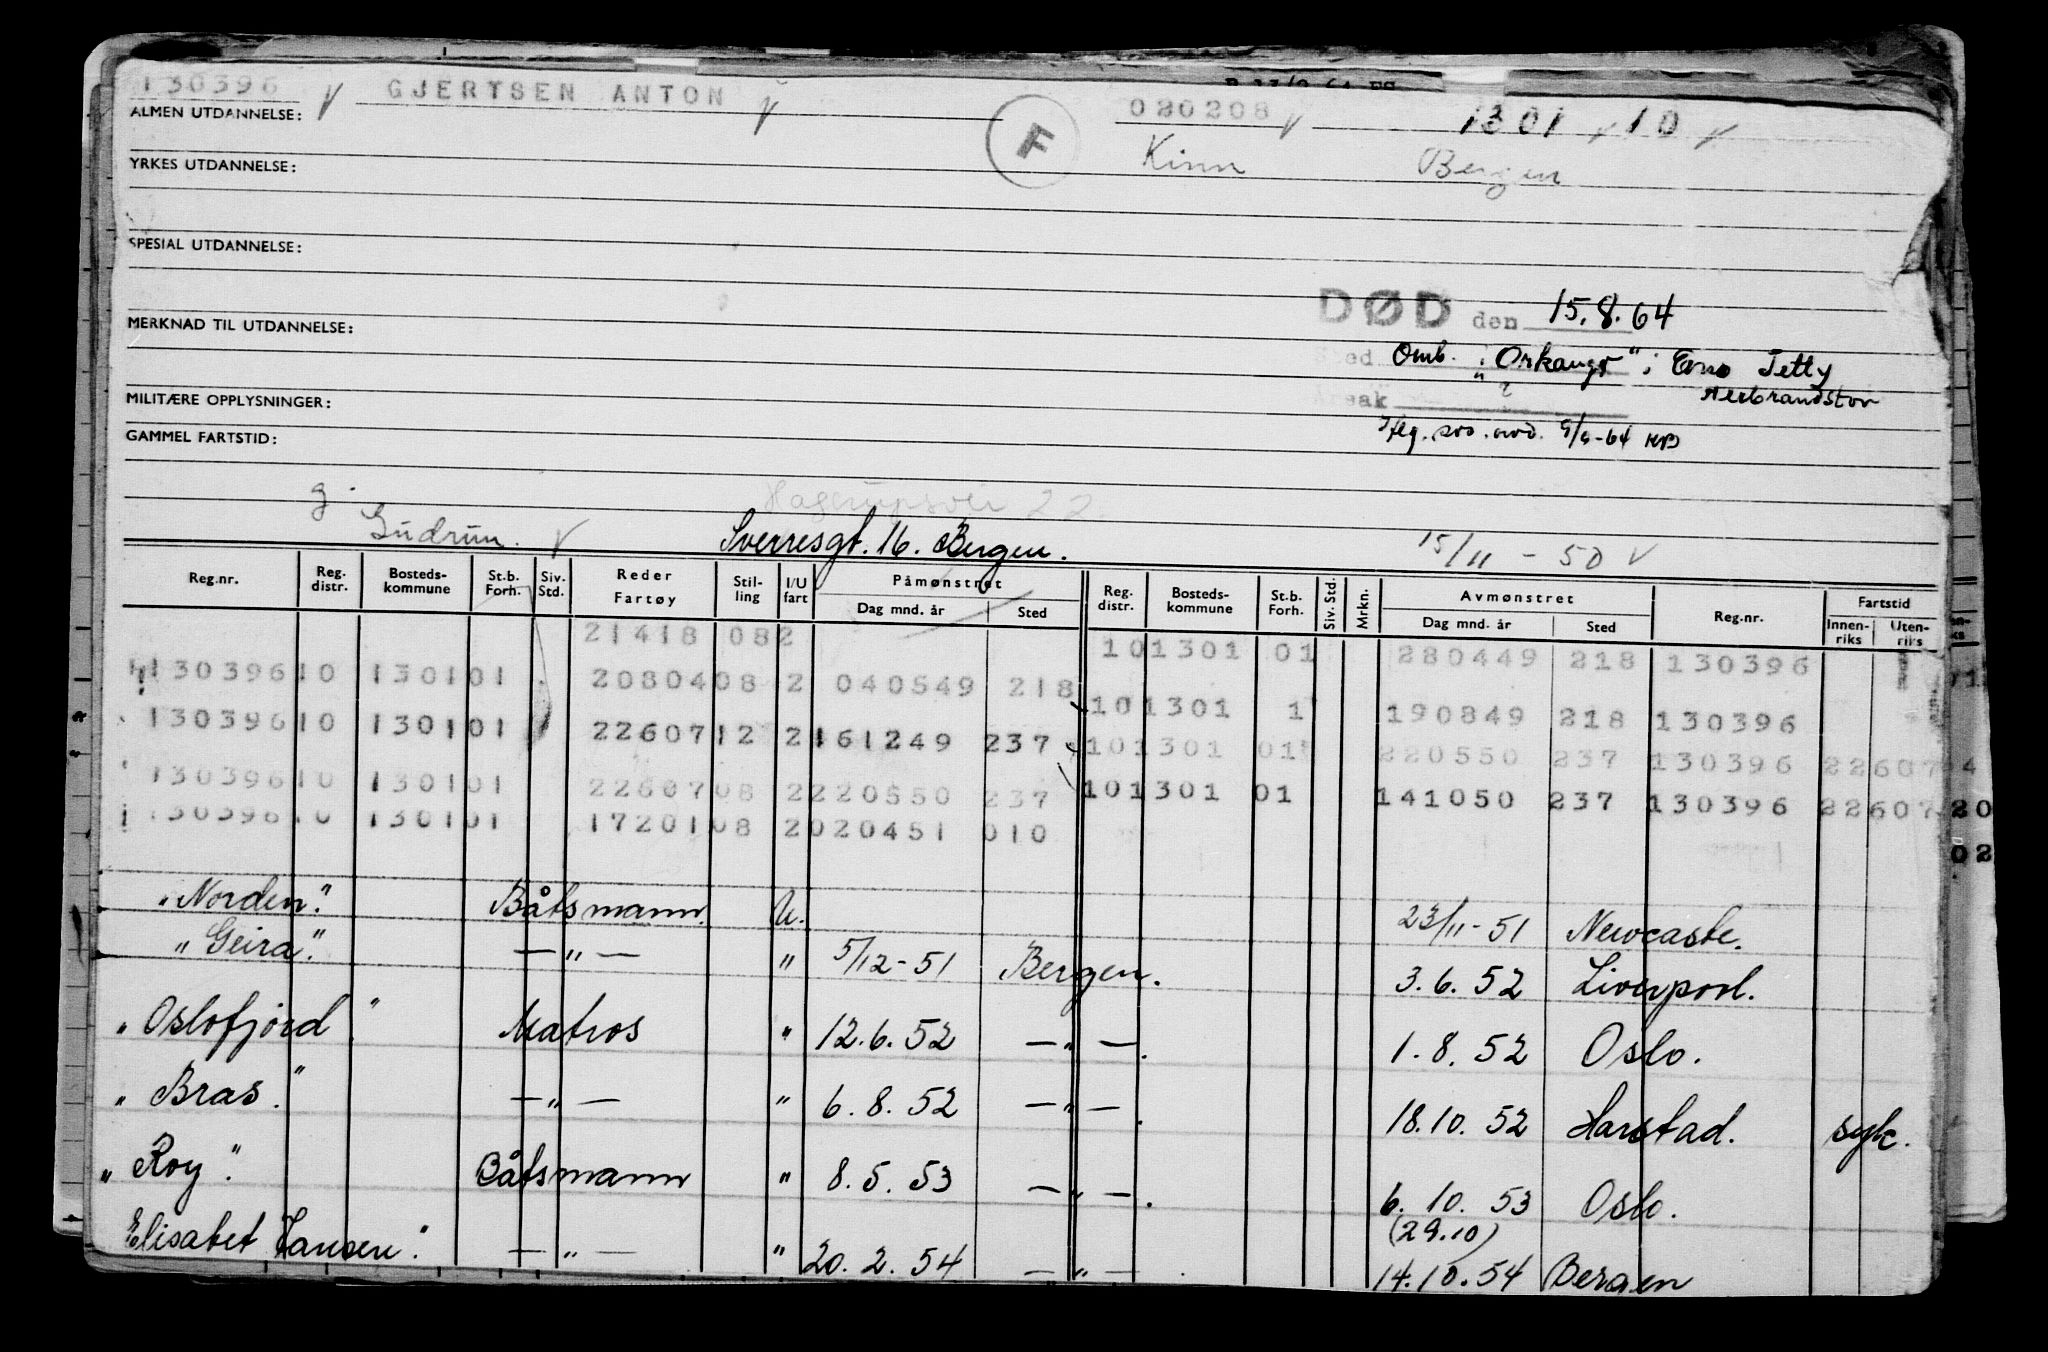 130396 GJERTSEN ANTON 020208 1301 10
ALMEN UTDANNELSE:
F
Kinn Bergen
YRKES UTDANNELSE:
SPESIAL UTDANNELSE:
DØD den 15.8.64
MERKNAD TIL UTDANNELSE:
Sted Omb. "Orkanger" i
Årsak
MILITÆRE OPPLYSNINGER:
GAMMEL FARTSTID:
g. Hagerupsvei 22.
Gudrun. Sverresgt. 16. Bergen. 15/11 - 50
Reg.nr. Reg. distr. Bosteds- kommune St.b. Forh. Siv. Std. Reder Fartøy Stil- ling I/U fart Påmønstret Dag mnd. år Sted Reg. distr. Bosteds- kommune St.b. Forh. Siv. Std. Mrkn. Avmønstret Dag mnd. år Sted Reg.nr. Fartstid Innen- riks Uten- riks
21418 082 101301 01 280449 218 130396
13039610 130101 2080408 2 040549 218 101301 1 190849 218 130396
13039610 130101 2260712 2161249 237 101301 01 220550 237 130396 22607 4
13039610 130101 2260708 2220550 237 101301 01 141050 237 130396 22607 20
13039610 130101 1720108 2020451 010 02
"Norden". Båtsmann. U. 23/11-51 Newcastle.
"Geira". —"— " 5/12-51 Bergen. 3.6.52 Liverpool.
"Oslofjord". Matros " 12.6.52 —"—. 1.8.52 Oslo.
"Bras". —"— " 6.8.52 —"—. 18.10.52 Harstad. syk.
"Roy". Båtsmann " 8.5.53 —"—. 6.10.53 Oslo.
(29.10)
Elisabet Hansen". —"— " 20.2.54 —"—. 14.10.54 Bergen